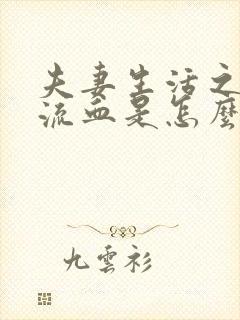 夫妻生活之
流血是怎麼
九雲衫